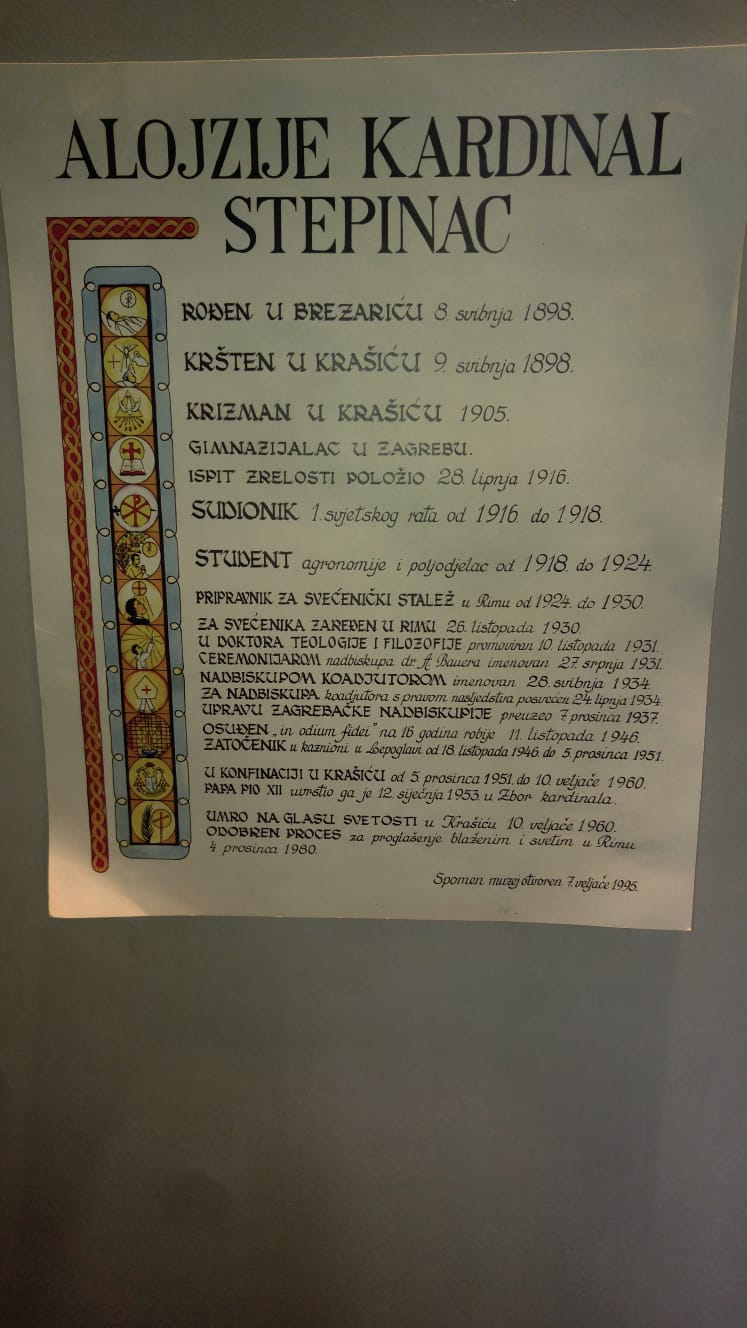 ALOJZIJE KARDINAL
STEPINAC
ROĐEN U BREZARIĆU 8. svibnja 1898.
KRŠTEN U KRAŠIĆU 9. svibnja 1898.
KRIZMAN U KRAŠIĆU 1905.
GIMNAZIJALAC U ZAGREBU.
ISPIT ZRELOSTI POLOŽIO 28. lipnja 1916.
SUDIONIK 1. svjetskog rata od 1916. do 1918.
STUDENT agronomije i poljodjelac od 1918. do 1924.
PRIPRAVNIK ZA SVEĆENIČKI STALEŽ u Rimu od 1924. do 1930.
ZA SVEĆENIKA ZAREĐEN U RIMU 26. listopada 1930.
U DOKTORA TEOLOGIJE I FILOZOFIJE promoviran 10. listopada 1931.
CEREMONIJAROM nadbiskupa dr. A Bauera imenovan 27. srpnja 1931.
NADBISKUPOM KOADJUTOROM imenovan 28. svibnja 1934.
ZA NADBISKUPA koadjutora s pravom nasljedstva posvećen 24. lipnja 1934.
UPRAVU ZAGREBAČKE NADBISKUPIJE preuzeo 7. prosinca 1937.
OSUĐEN „in odium fidei" na 16 godina robije 11. listopada 1946.
ZATOČENIK u kaznioni u Lepoglavi od 18. listopada 1946. do 5. prosinca 1951.
U KONFINACIJI U KRAŠIĆU od 5. prosinca 1951. do 10. veljače 1960.
PAPA PIO XII uvrstio ga je 12. siječnja 1953. u Zbor kardinala.
UMRO NA GLASU SVETOSTI u Krašiću 10. veljače 1960.
ODOBREN PROCES za proglašenje blaženim i svetim u Rimu
4. prosinca 1980.
Spomen muzej otvoren 7. veljače 1995.